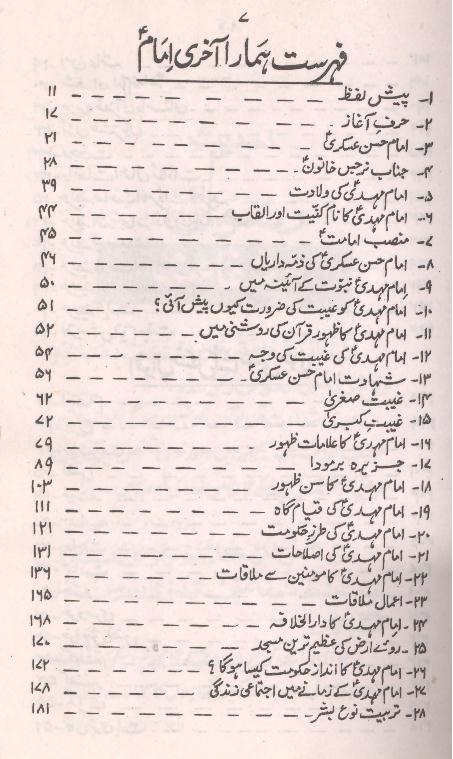 ۷
فہرست ہمارا آخری امامؑ
۱۔ پیش لفظ ۱۱
۲۔ حرفِ آغاز ۱۷
۳۔ امام حسن عسکریؑ ۲۱
۴۔ جناب نرجس خاتونؑ ۲۸
۵۔ امام مہدیؑ کی ولادت ۳۹
۶۔ امام مہدیؑ کا نام کنیت اور القاب ۴۴
۷۔ منصب امامتؑ ۴۵
۸۔ امام حسن عسکریؑ کی ذمہ داریاں ۴۶
۹۔ امام مہدیؑ نبوت کے آئینہ میں ۵۰
۱۰۔ امام مہدیؑ کو غیبت کی ضرورت کیوں پیش آئی؟ ۵۱
۱۱۔ امام مہدیؑ کا ظہور قرآن کی روشنی میں ۵۲
۱۲۔ امام مہدیؑ کی غیبت کی وجہ ۵۴
۱۳۔ شہادت امام حسن عسکریؑ ۵۶
۱۴۔ غیبت صغریٰ ۶۲
۱۵۔ غیبت کبریٰ ۷۲
۱۶۔ امام مہدیؑ کا علامات ظہور ۷۹
۱۷۔ جزیرہ برمودا ۸۹
۱۸۔ امام مہدیؑ کا سن ظہور ۱۰۳
۱۹۔ امام مہدیؑ کی قیام گاہ ۱۱۱
۲۰۔ امام مہدیؑ کی طرزِ حکومت ۱۲۱
۲۱۔ امام مہدیؑ کی اصلاحات ۱۳۱
۲۲۔ امام مہدیؑ کا مومنین سے ملاقات ۱۳۶
۲۳۔ اعمال ملاقات ۱۶۵
۲۴۔ امام مہدیؑ کا دارالخلافہ ۱۶۸
۲۵۔ روئے ارض کی عظیم ترین مسجد ۱۷۰
۲۶۔ امام مہدیؑ کا انداز حکومت کیسا ہوگا؟ ۱۷۲
۲۷۔ امام مہدیؑ کے زمانے میں اجتماعی زندگی ۱۷۸
۲۸۔ تربیت نوع بشر ۱۸۱